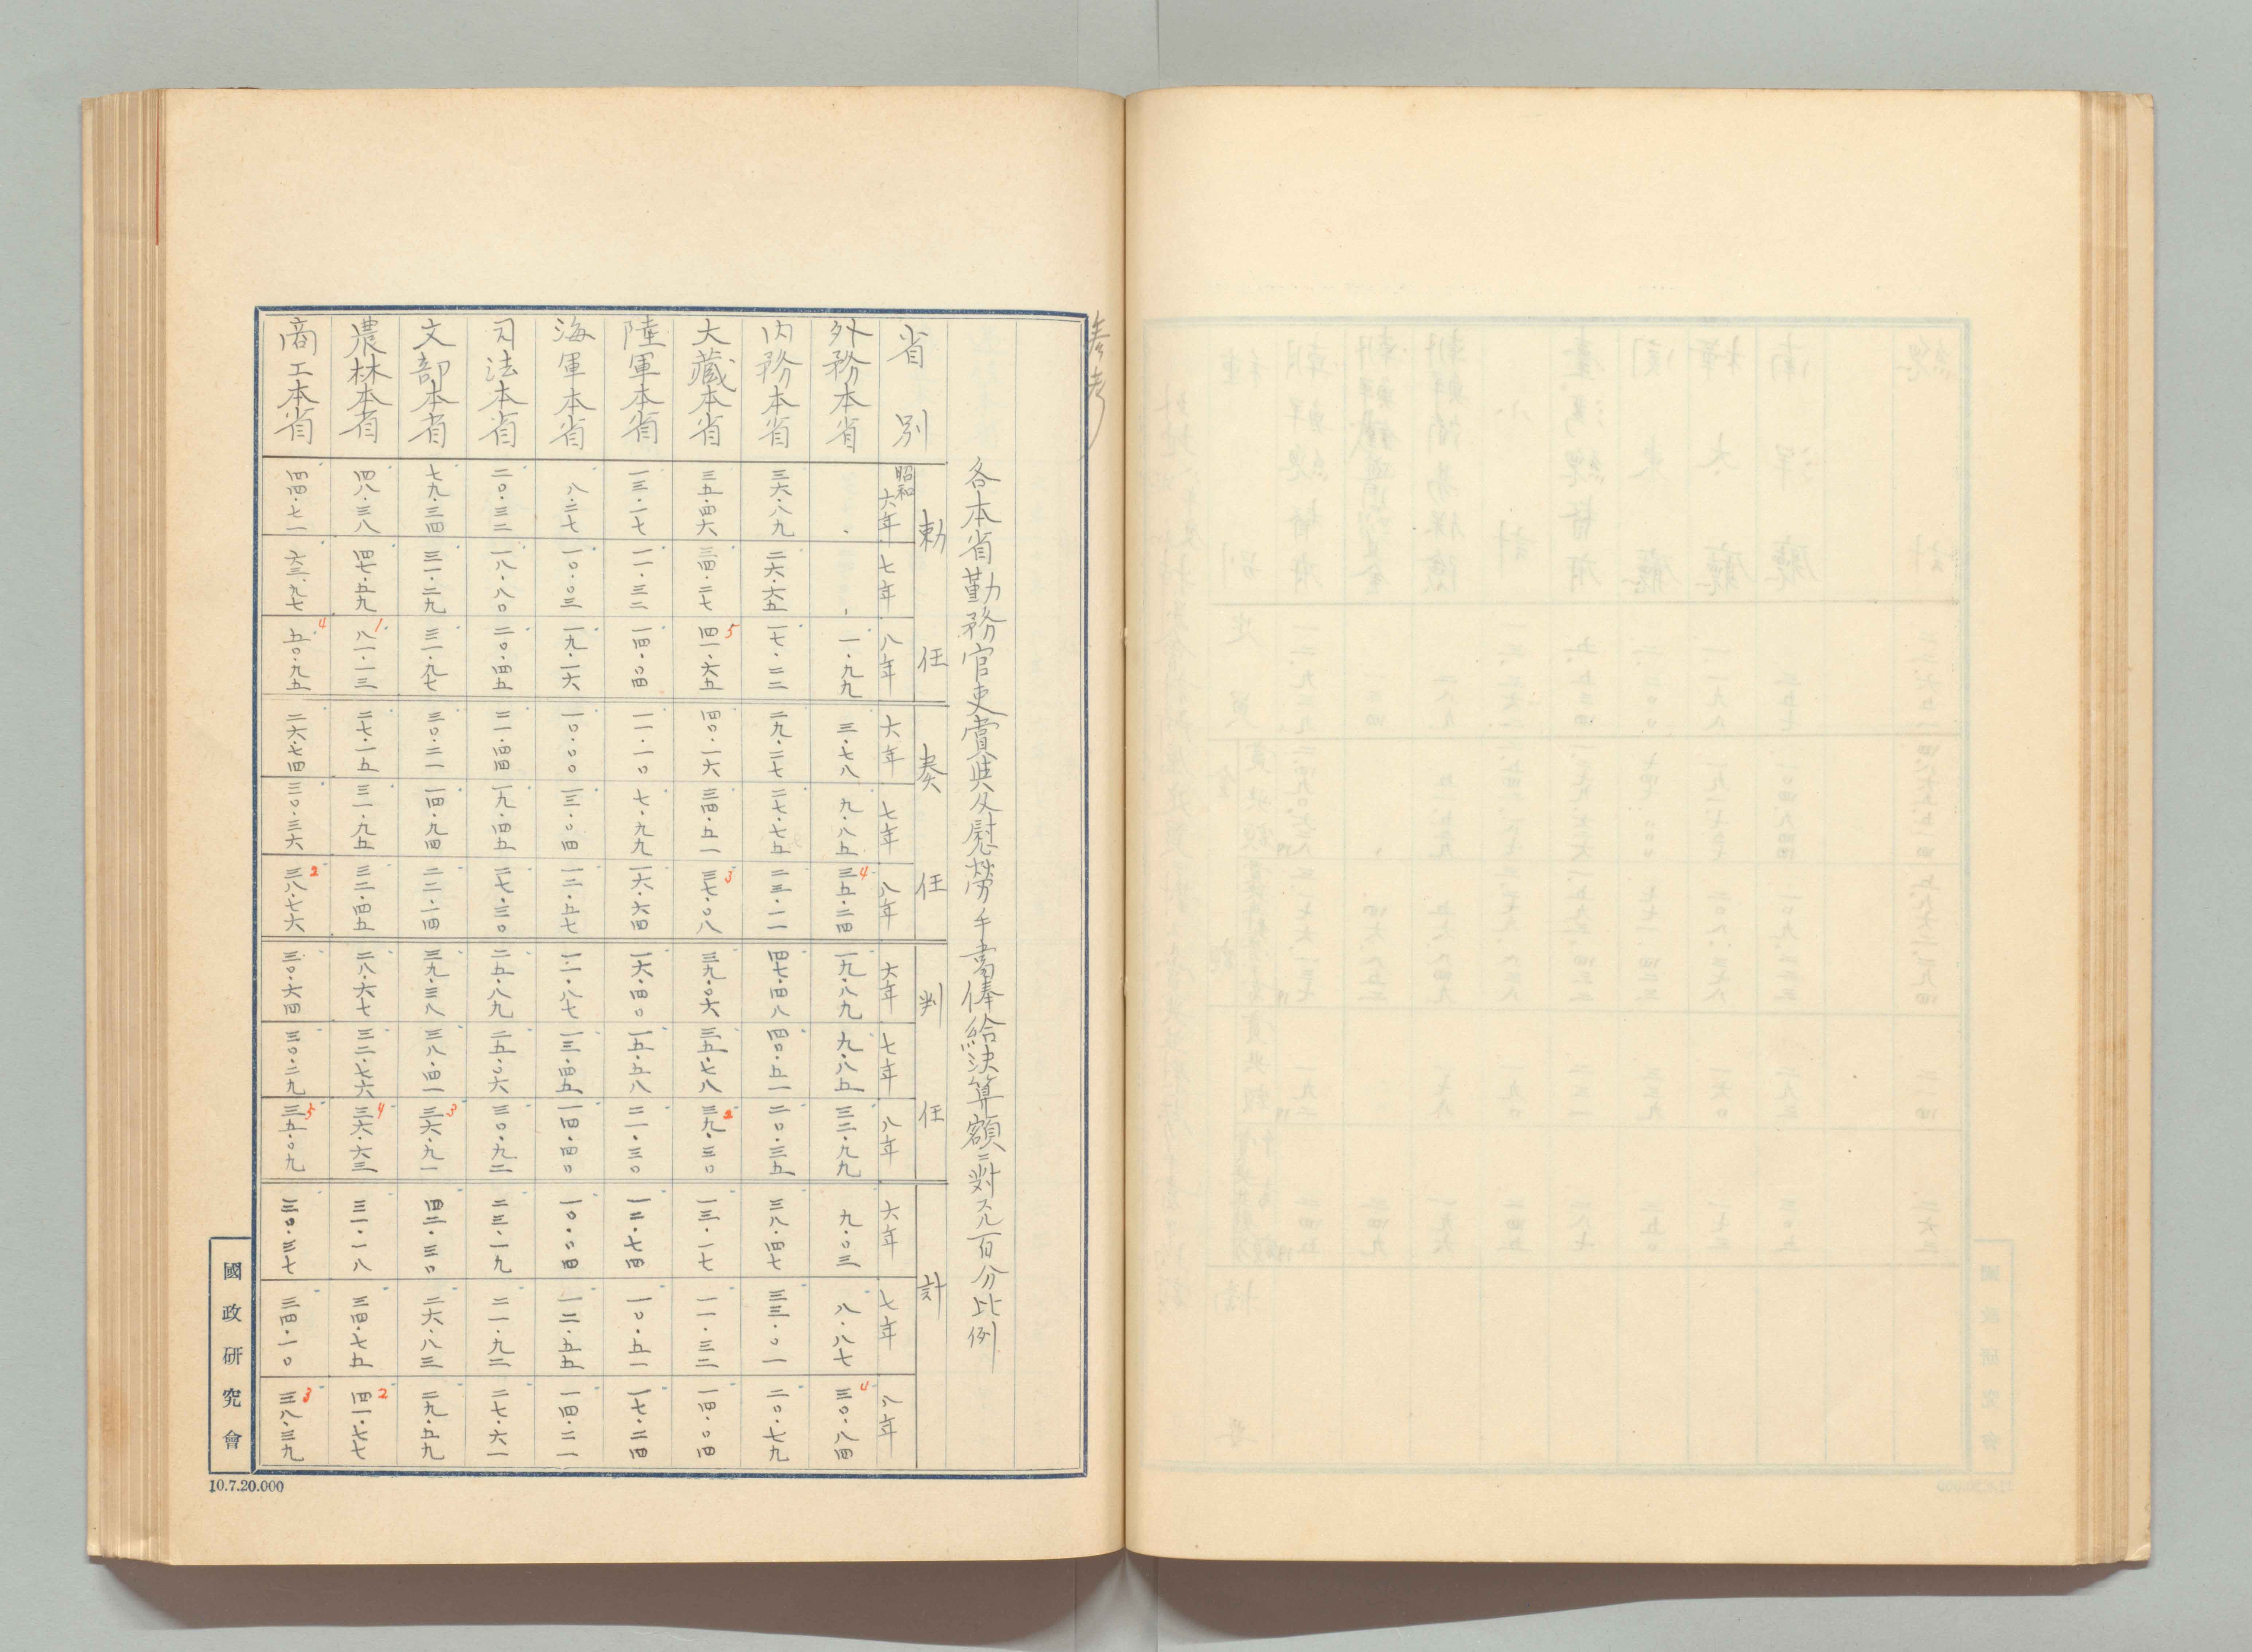 參考
各本省勤務官吏賞與及慰勞手當俸給決算額ニ對スル百分比例
省別 勅任 奏任 判任 計
昭和六年 七年 八年 六年 七年 八年 六年 七年 八年 六年 七年 八年
外務本省 、 、 一・九九 三・七八 九・八五 三五・二四 4 一九・八九 九・八五 三三・九九 九・〇三 八・八七 三〇・八四 4
内務本省 三六・八九 二六・六五 一七・二二 二九・二七 二七・七五 二三・一一 四七・四八 四〇・五一 二〇・三五 三八・四七 三三・〇一 二〇・七九
大藏本省 三五・四六 三四・二七 四一・六五 5 四〇・一六 三四・五一 三七・〇八 3 三九・〇六 三五・七八 三九・三〇 2 一三・一七 一一・三二 一四・〇四
陸軍本省 一三・一七 一一・三二 一四・〇四 一一・一〇 七・九九 一六・六四 一六・四〇 一五・五八 二一・三〇 一二・七四 一〇・五一 一七・二四
海軍本省 八・二七 一〇・〇三 一九・一六 一〇・〇〇 一三・〇四 一二・五七 一一・八七 一三・四五 一四・四〇 一〇・〇四 一二・五五 一四・二一
司法本省 二〇・三二 一八・八〇 二〇・四五 二一・四四 一九・四五 二七・三〇 二五・八九 二五・〇六 三〇・九二 二三・一九 二一・九二 二七・六一
文部本省 七九・三四 三一・二九 三一・九七 三〇・二一 一四・九四 二二・一四 三九・三八 三八・四一 三六・九一 3 四二・三〇 二六・八三 二九・五九
農林本省 四八・三八 四七・五九 八一・一三 1 二七・一五 三一・九五 三二・四五 二八・六七 三二・七六 三六・六三 4 三一・一八 三四・七五 四一・七七 2
商工本省 四四・七一 六三・九七 五〇・九五 4 二六・七四 三〇・三六 三八・七六 2 三〇・六四 三〇・二九 三五・〇九 5 三〇・三七 三四・一〇 三八・三九 3
國政研究會
10.7.20.000